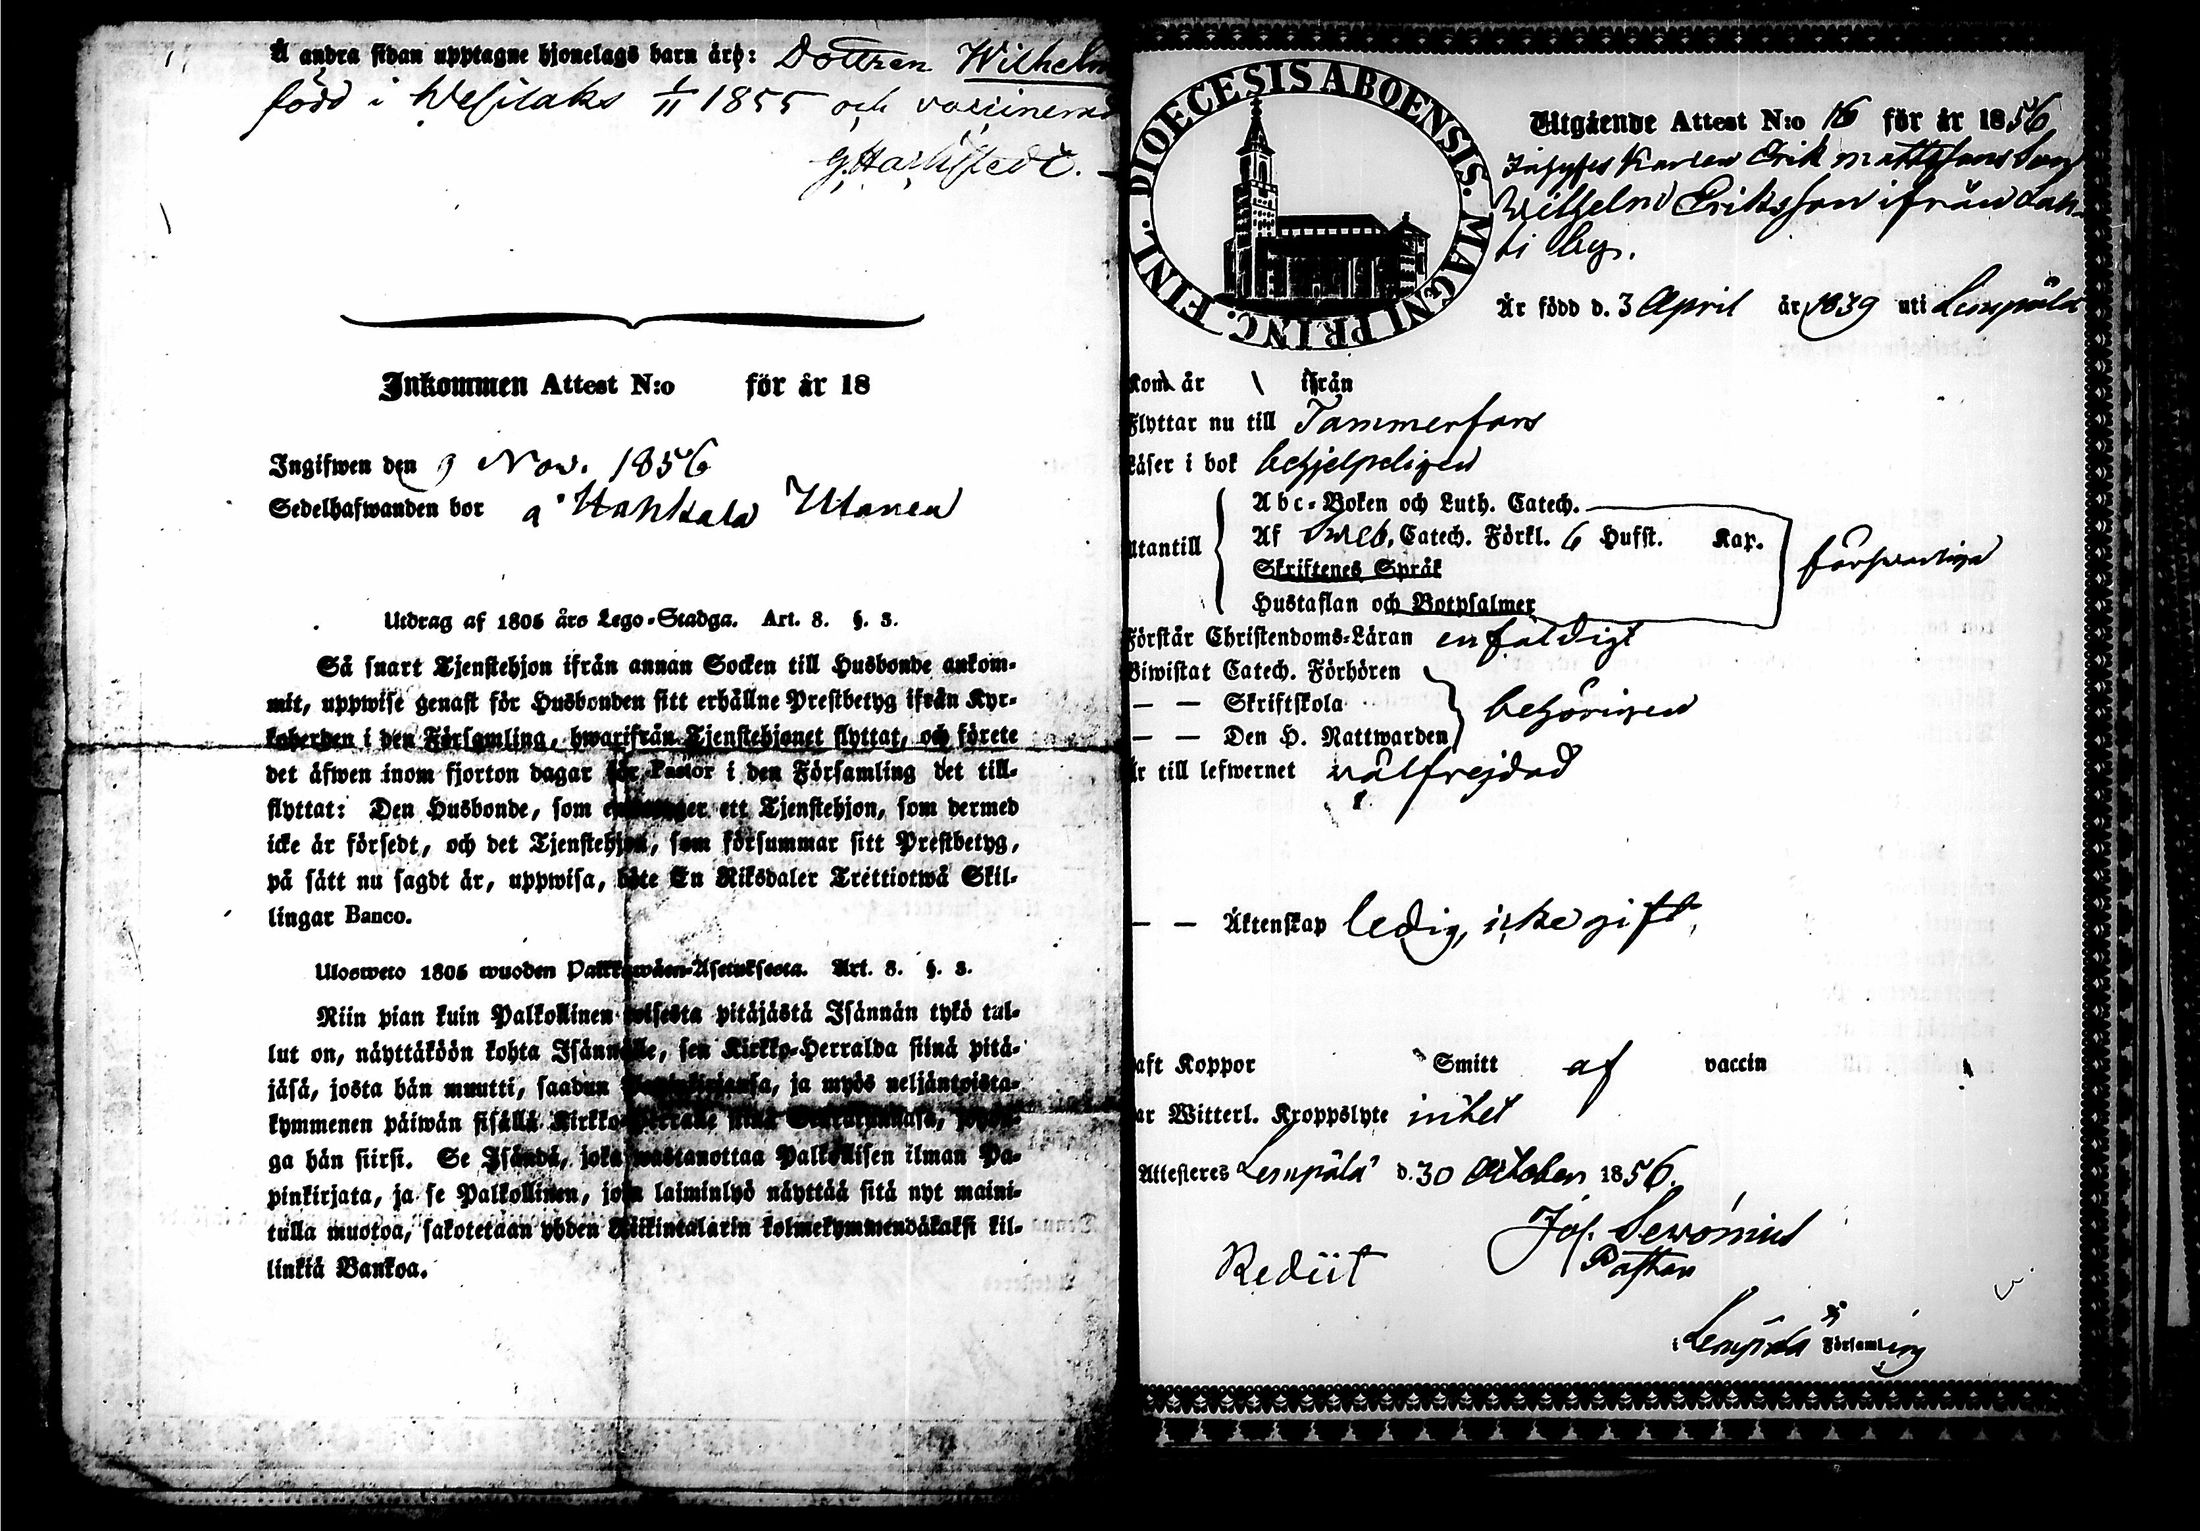 Å andra sidan upptagne hjonelags barn är: Dottren Wilhelm
född i Wesilaks 1/11 1855 och vaccinerad
Inkommen Attest N:o för år 18
Ingifwen den 9 Nov. 1856
Sedelhafwanden bor å Hahkala
Utdrag af 1805 års Lego-Stadga. Art. 8. §. 3.
Så snart Tjenstehjon ifrån annan Socken till Husbonde ankom-
mit, uppwise genast för Husbonden sitt erhållne Prestbetyg ifrån Kyr-
koherden i den Församling, hwarifrån Tjenstehjonet flyttat, och förete
det äfwen inom fjorton dagar för Pastor i den Församling det till-
flyttat: Den Husbonde, som ett Tjenstehjon, som dermed
icke är försedt, och det Tjenstehjon, som försummar sitt Prestbetyg,
på sätt nu sagdt är, uppwisa, böte En Riksdaler Trettiotwå Skil-
lingar Banco.
Ulosweto 1805 wuoden Palkkawäen-Asetuksesta. Art. 8. §. 3.
Niin pian kuin Palkollinen toisesta pitäjästä Isännän tykö tul-
lut on, näyttäköön kohta Isännälle, sen Kirkko-Herralda siinä pitä-
jäsä, josta hän muutti, saadun Papinkirjansa, ja myös neljäntoista-
kymmenen päiwän sisällä Kirkko-Herralle siinä Seurakunnasa, johon-
ga hän siirsi. Se Isändä, joka wastanottaa Palkollisen ilman Pa-
pinkirjata, ja se Palkollinen, joka laiminlyö näyttää sitä nyt maini-
tulla muotoa, sakotetaan yhden Riikintalarin kolmekymmendäkaksi kil-
linkiä Bankoa.
DIOECESIS ABOENSIS. MAGNI PRINC. FINL.
Utgående Attest N:o 16 för år 1856
Inhyses Karlen Erik Mattssons Son
Wilhelm Eriksson ifrån Lah-
ti by.
Är född d. 3 April år 1839 uti Lempälä
Kom år ifrån
Flyttar nu till Tammerfors
Läser i bok behjelpeligen
Utantill
Abc-Boken och Luth. Catech.
Af Sweb. Catech. Förkl. 6 Hufst. Kap.
Skriftenes Språk
Hustaflan och Botpsalmer
försvarliga
Förstår Christendoms-Läran enfaldigt
Biwistat Catech. Förhören
— — Skriftskola
— — Den H. Nattwarden
behörigen
Är till lefwernet välfrejdad
— — Äktenskap ledig, icke gift,
aft Koppor Smitt af vaccin
ar Witterl. Kroppslyte intet
Attesteres Lempälä d. 30 October 1856.
Jos. Seronius
Pastor
Rediit
i Lempälä Församling